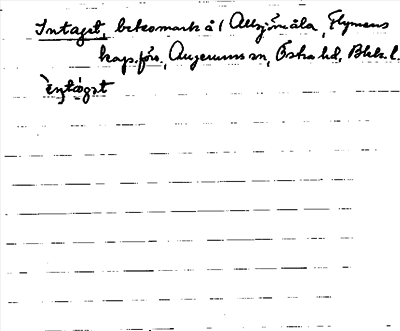 Intaget, betesmark å 1 Allsjömåla, Flymens
kap.förs., Augerums sn, Östra hd, Blek. l.
èntàgst